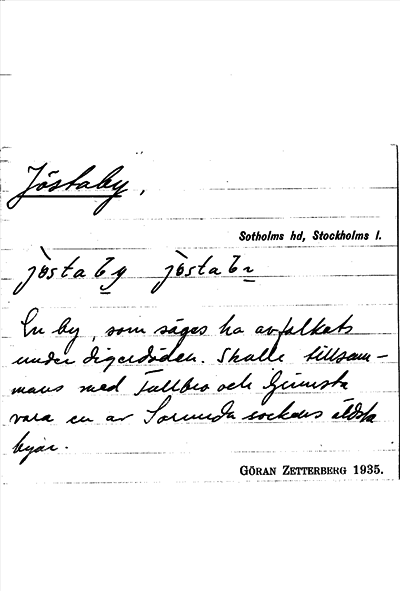 Jöstaby,
Sotholms hd, Stockholms l.
jö̀staby jö̀stabı
En by, som säges ha avfolkats
under digerdöden. Skulle tillsam-
mans med Tallbro och Gümsta
vara en av Sorunda sockens äldsta
byar.
GÖRAN ZETTERBERG 1935.